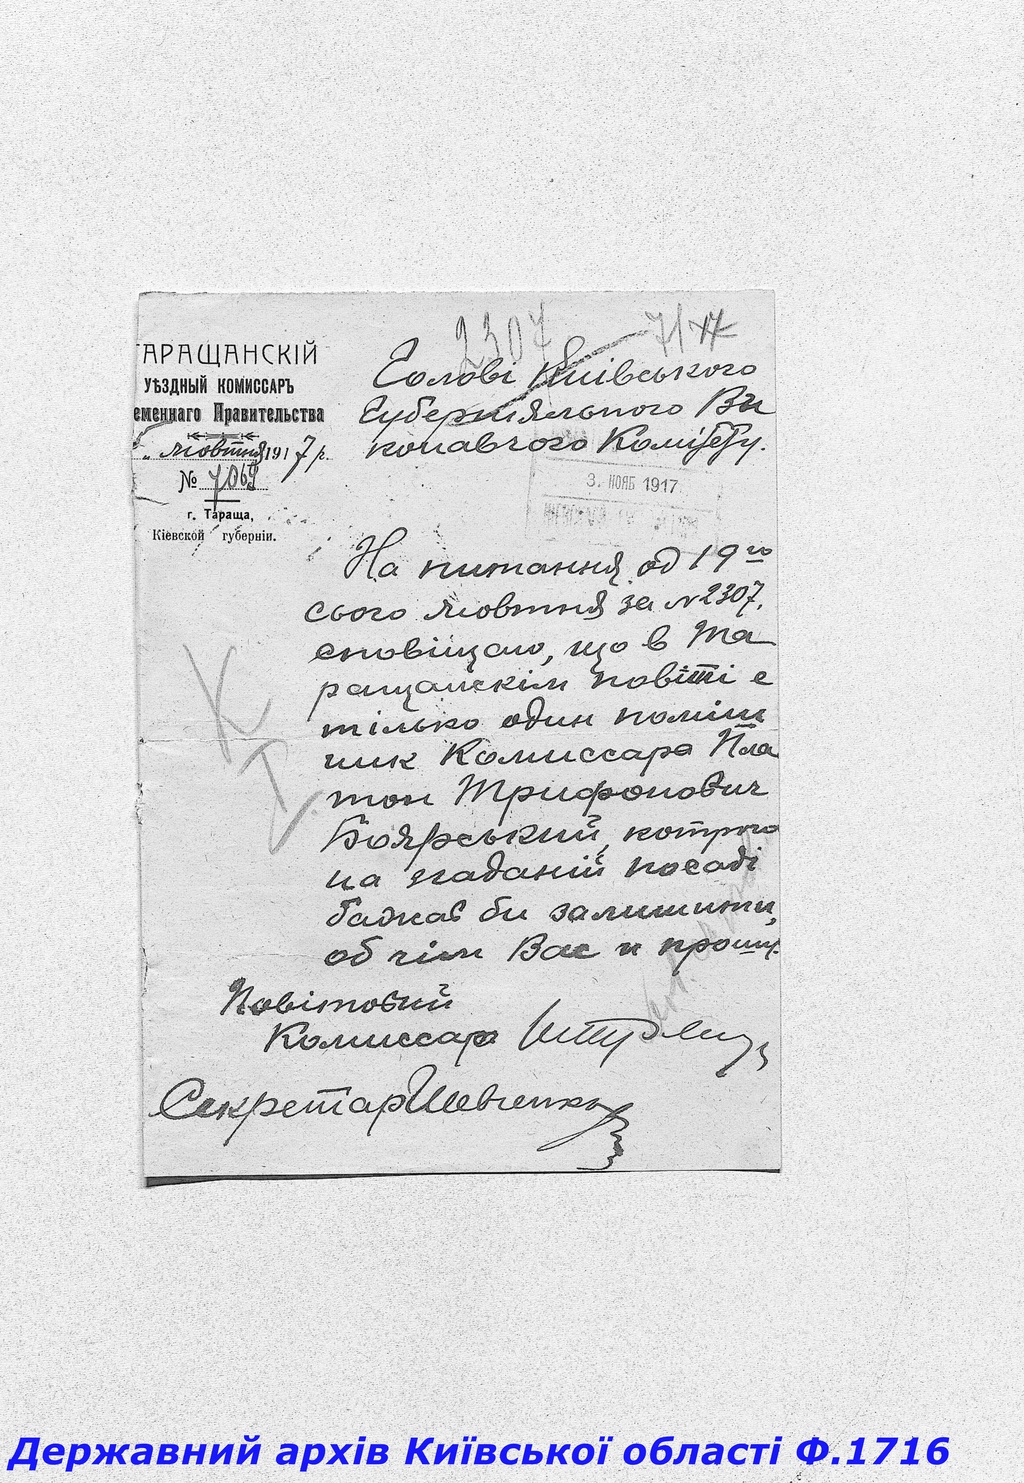 2307 7/XI
ТАРАЩАНСКІЙ
УѢЗДНЫЙ КОМИССАРЪ
еменнаго Правительства
жовтня 1917 р.
№ 7069
г. Тараща,
Кіевской губерніи.
Голові Київського
Губерніяльного Ви
конавчого Комітету.
3. НОЯБ 1917
На питання од 19го
сього жовтня за №2307,
сповіщаю, що в Та
ращанскім повіті є
тілько один поміш
ник Комиссара Пла
тон Трифонович
Боярський, котрого
на згаданій посаді
бажав би залишити,
об чім Вас и прошу.
Повітовий
Комиссар
Секретар Шевченко
Державний архів Київської області Ф.1716